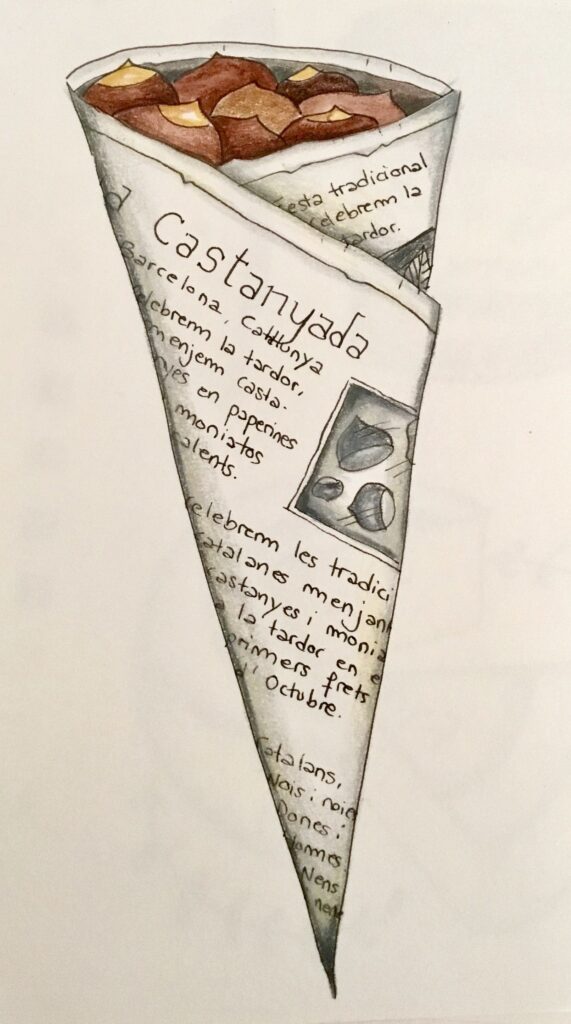 Festa tradicional
celebrem la
tardor.
a Castanyada
Barcelona,
elebrem la tardor,
menjem casta-
nyes en paperines
moniatos
calents.
celebrem les tradici
catalanes menjan
castanyes i monia
a la tardor en e
primers frets
Octubre.
Catalans,
Nois i noie
Dones i
Homes
Nens
nen